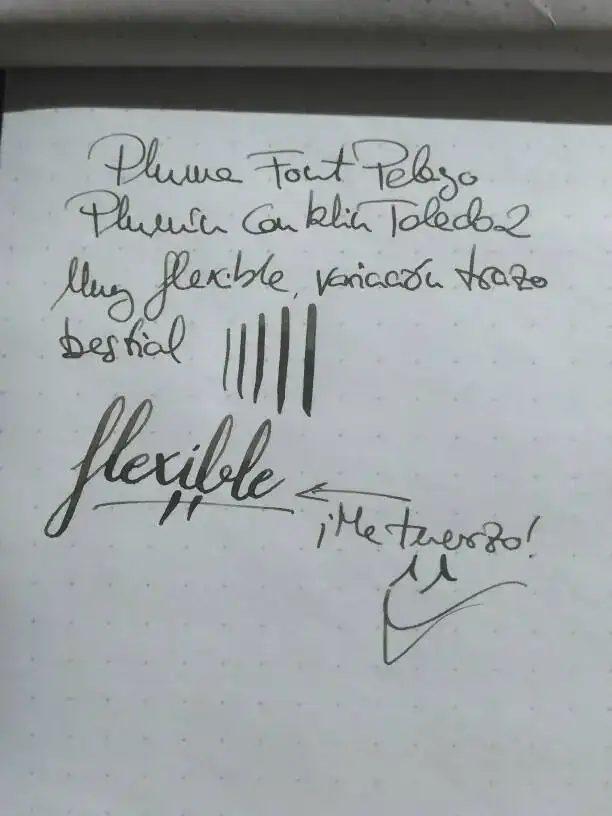 Pluma Font Pelayo
Plumín Conklin Toledo 2
Muy flexible, variación trazo
bestial
flexible
¡Me tuerzo!